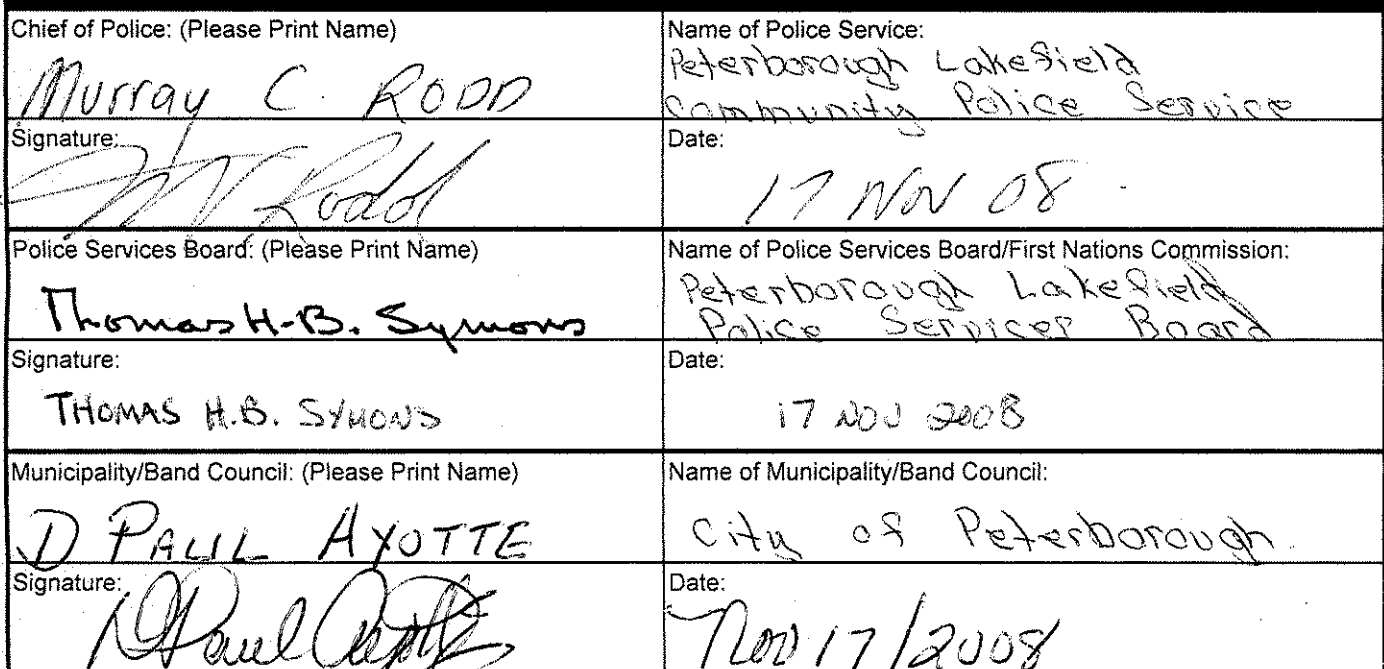 Chief of Police: (Please Print Name)
Murray C. RODD
Name of Police Service:
Peterborough Lakefield
Community Police Service
Signature:
M Rodd
Date:
17 NOV 08
Police Services Board: (Please Print Name)
Thomas H.B. Symons
Name of Police Services Board/First Nations Commission:
Peterborough Lakefield
Police Services Board
Signature:
THOMAS H.B. SYMONS
Date:
17 NOV 2008
Municipality/Band Council: (Please Print Name)
D PAUL AYOTTE
Name of Municipality/Band Council:
City of Peterborough
Signature:
D Paul Ayotte
Date:
Nov 17/2008